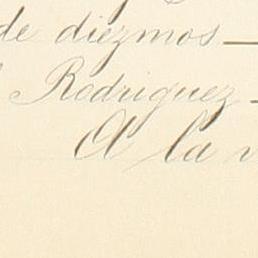 de diezmos—
Rodriguez—
A la